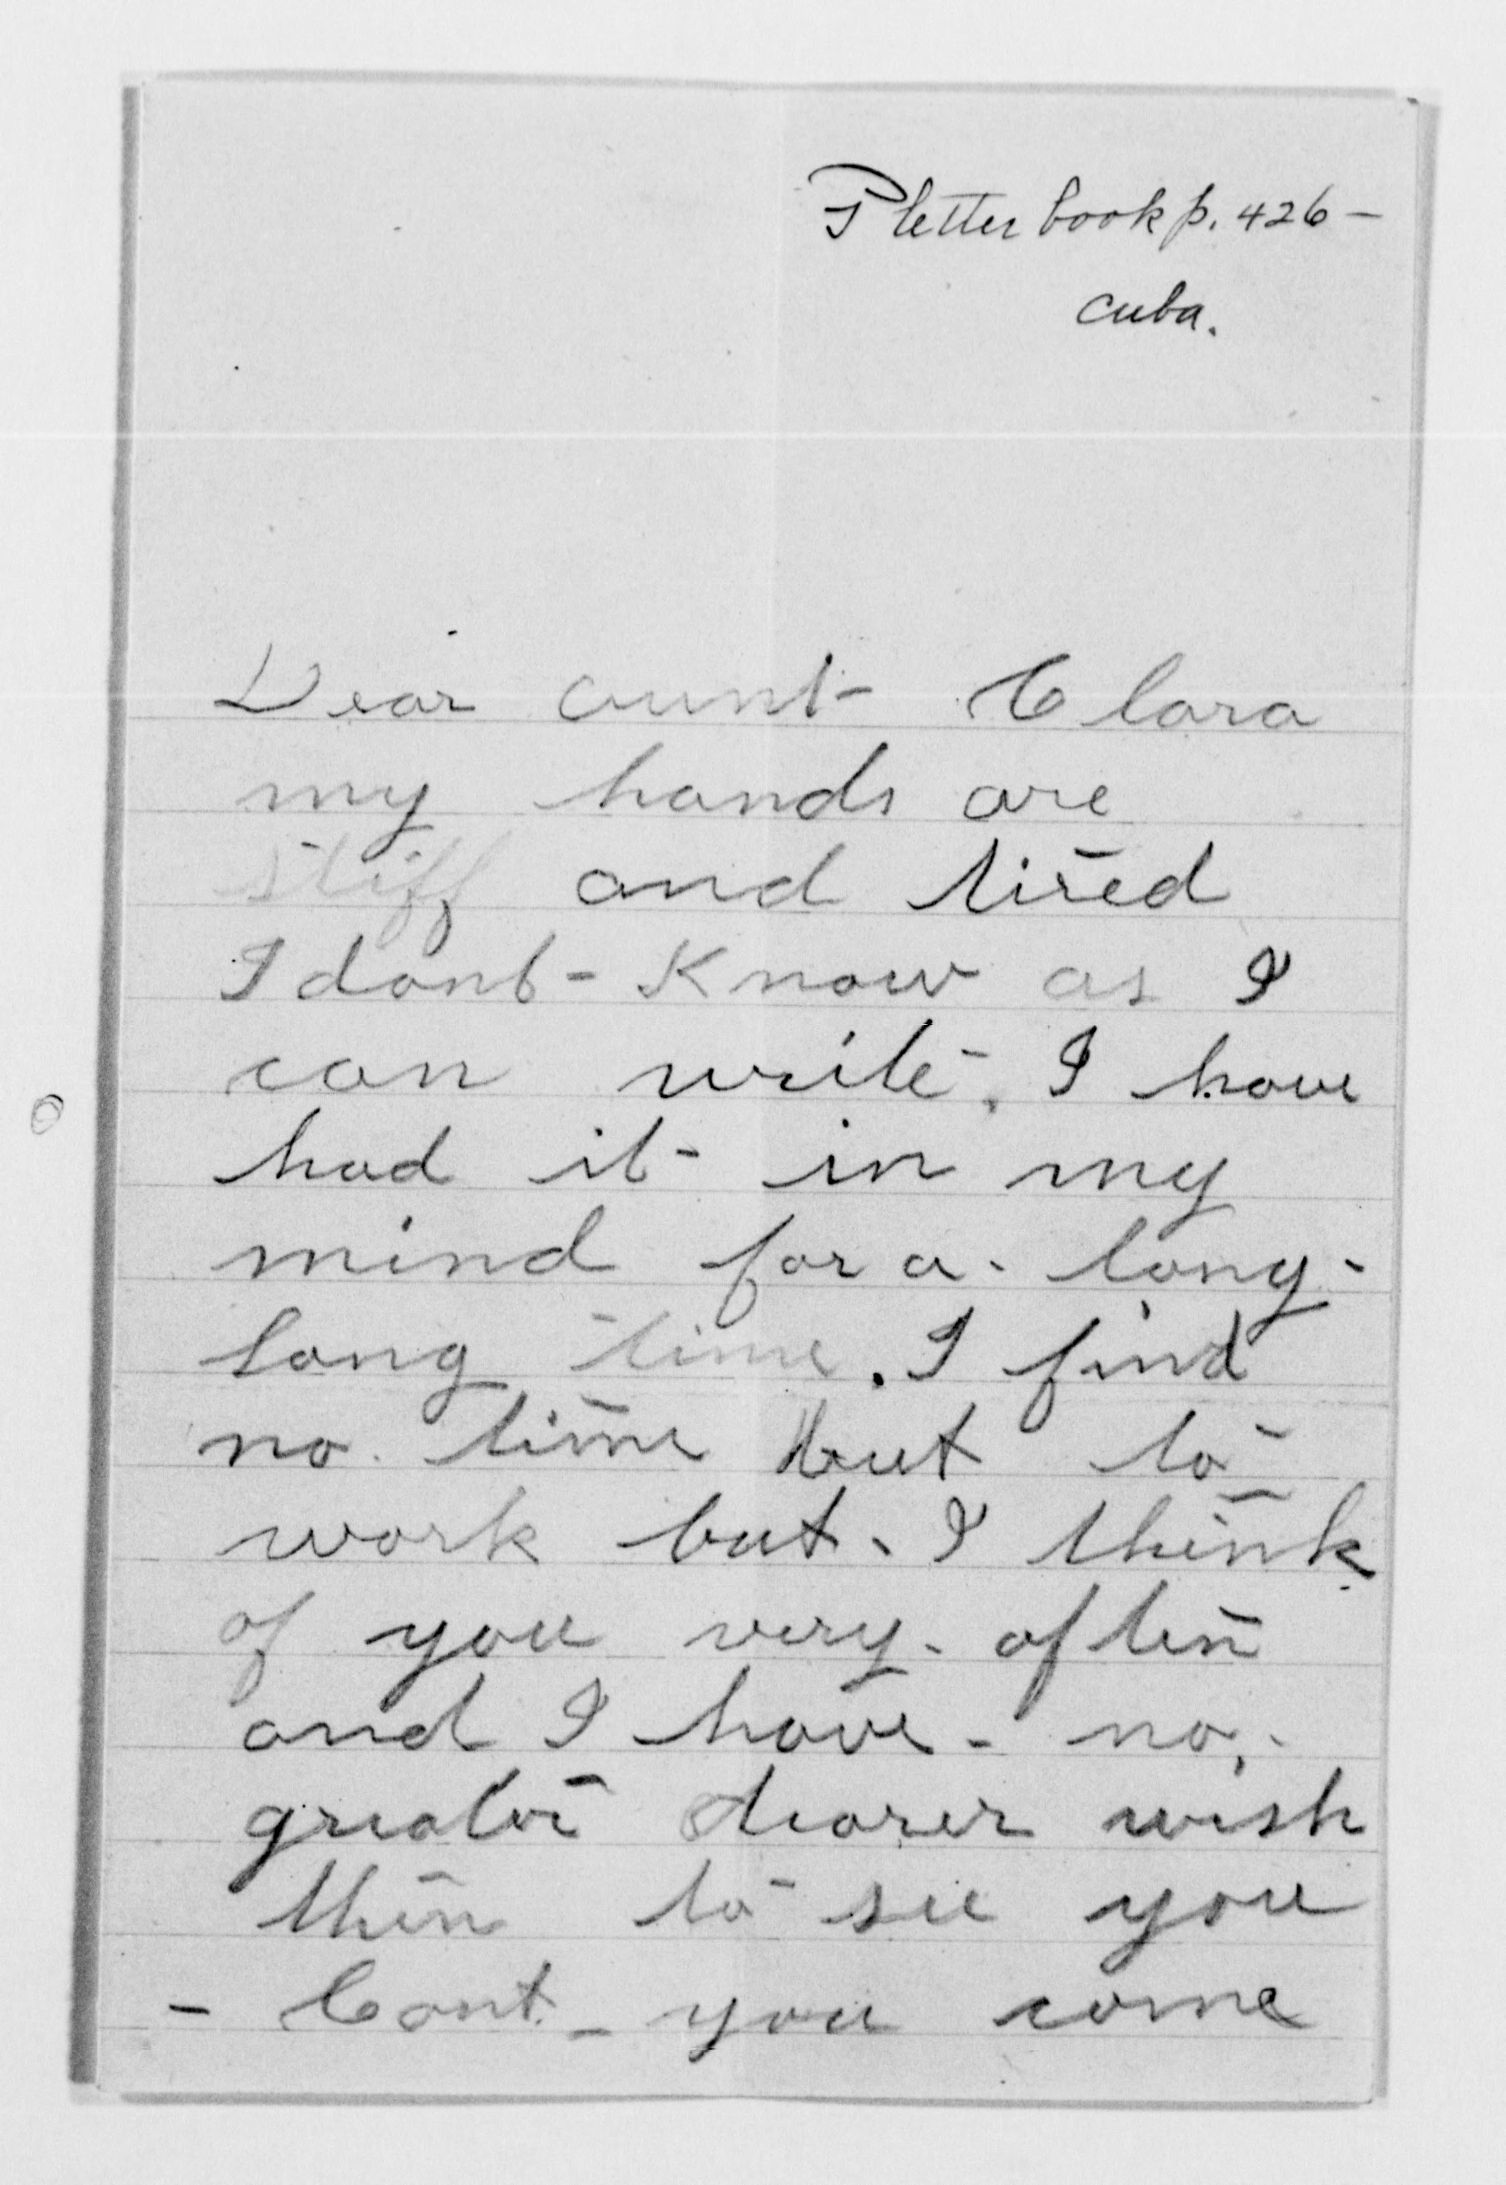 P letter book p. 426 -
Cuba.
Dear aunt - Clara
my hands are
stiff and tired
I dont - Know as I
can write. I have
had it - in my
mind for a - long -
long time. I find
no time but to
work but - I think
of you very - often
and I have - no -
greater dearer wish
then to see you
- Cant - you come